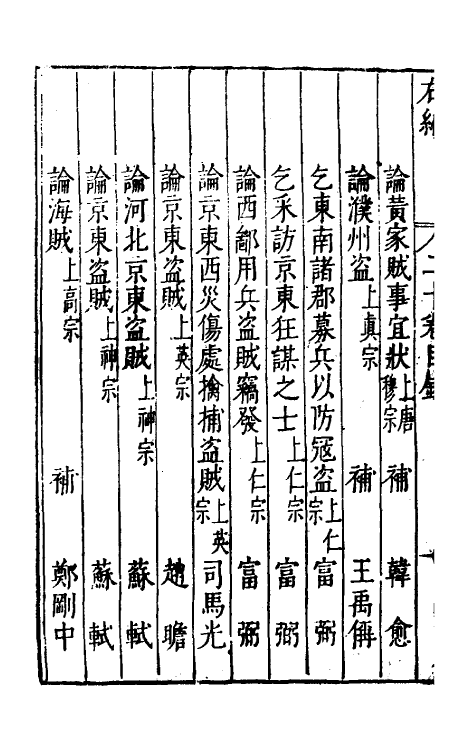 右編 二十卷目錄
論黃家賊事宜狀上唐穆宗 補 韓愈
論濮州盜上真宗 補 王禹偁
乞東南諸郡募兵以防寇盜上仁宗 富弼
乞采訪京東狂謀之士上仁宗 富弼
論西鄙用兵盜賊竊發上仁宗 富弼
論京東西災傷處擒捕盜賊上英宗 司馬光
論京東盜賊上英宗 趙瞻
論河北京東盜賊上神宗 蘇軾
論京東盜賊上神宗 蘇軾
論海賊上高宗 補 鄭剛中